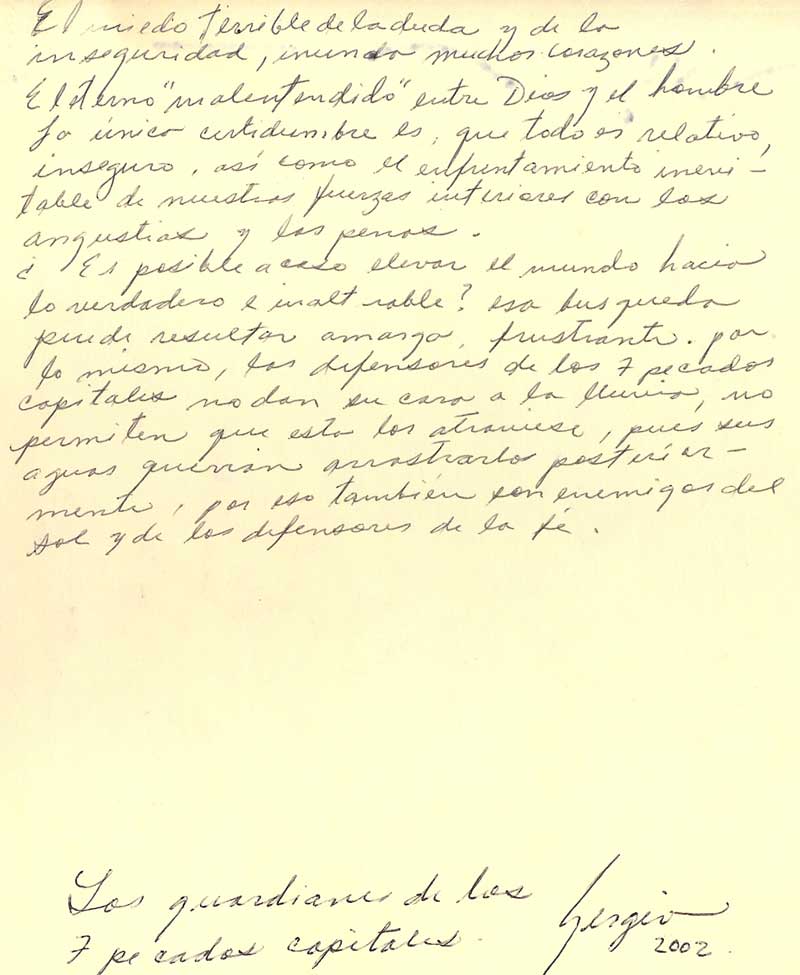 El miedo terrible de la duda y de la
inseguridad, inunda muchos corazones.
El eterno "malentendido" entre Dios y el hombre
La única certidumbre es, que todo es relativo,
inseguro, así como el enfrentamiento inevi-
table de nuestras fuerzas interiores con las
angustias y las penas.
¿ Es posible acaso elevar el mundo hacia
lo verdadero e inalt rable? esa busqueda
puede resultar amarga, frustrante. por
lo mismo, los defensores de los 7 pecados
capitales no dan su cara a la lluvia, no
permiten que esta los atraviese, pues sus
aguas querrian arrastrarlos posterior-
mente, por eso también son enemigos del
sol y de los defensores de la fé.
Los guardianes de los
7 pecados capitales.
Sergio
2002.